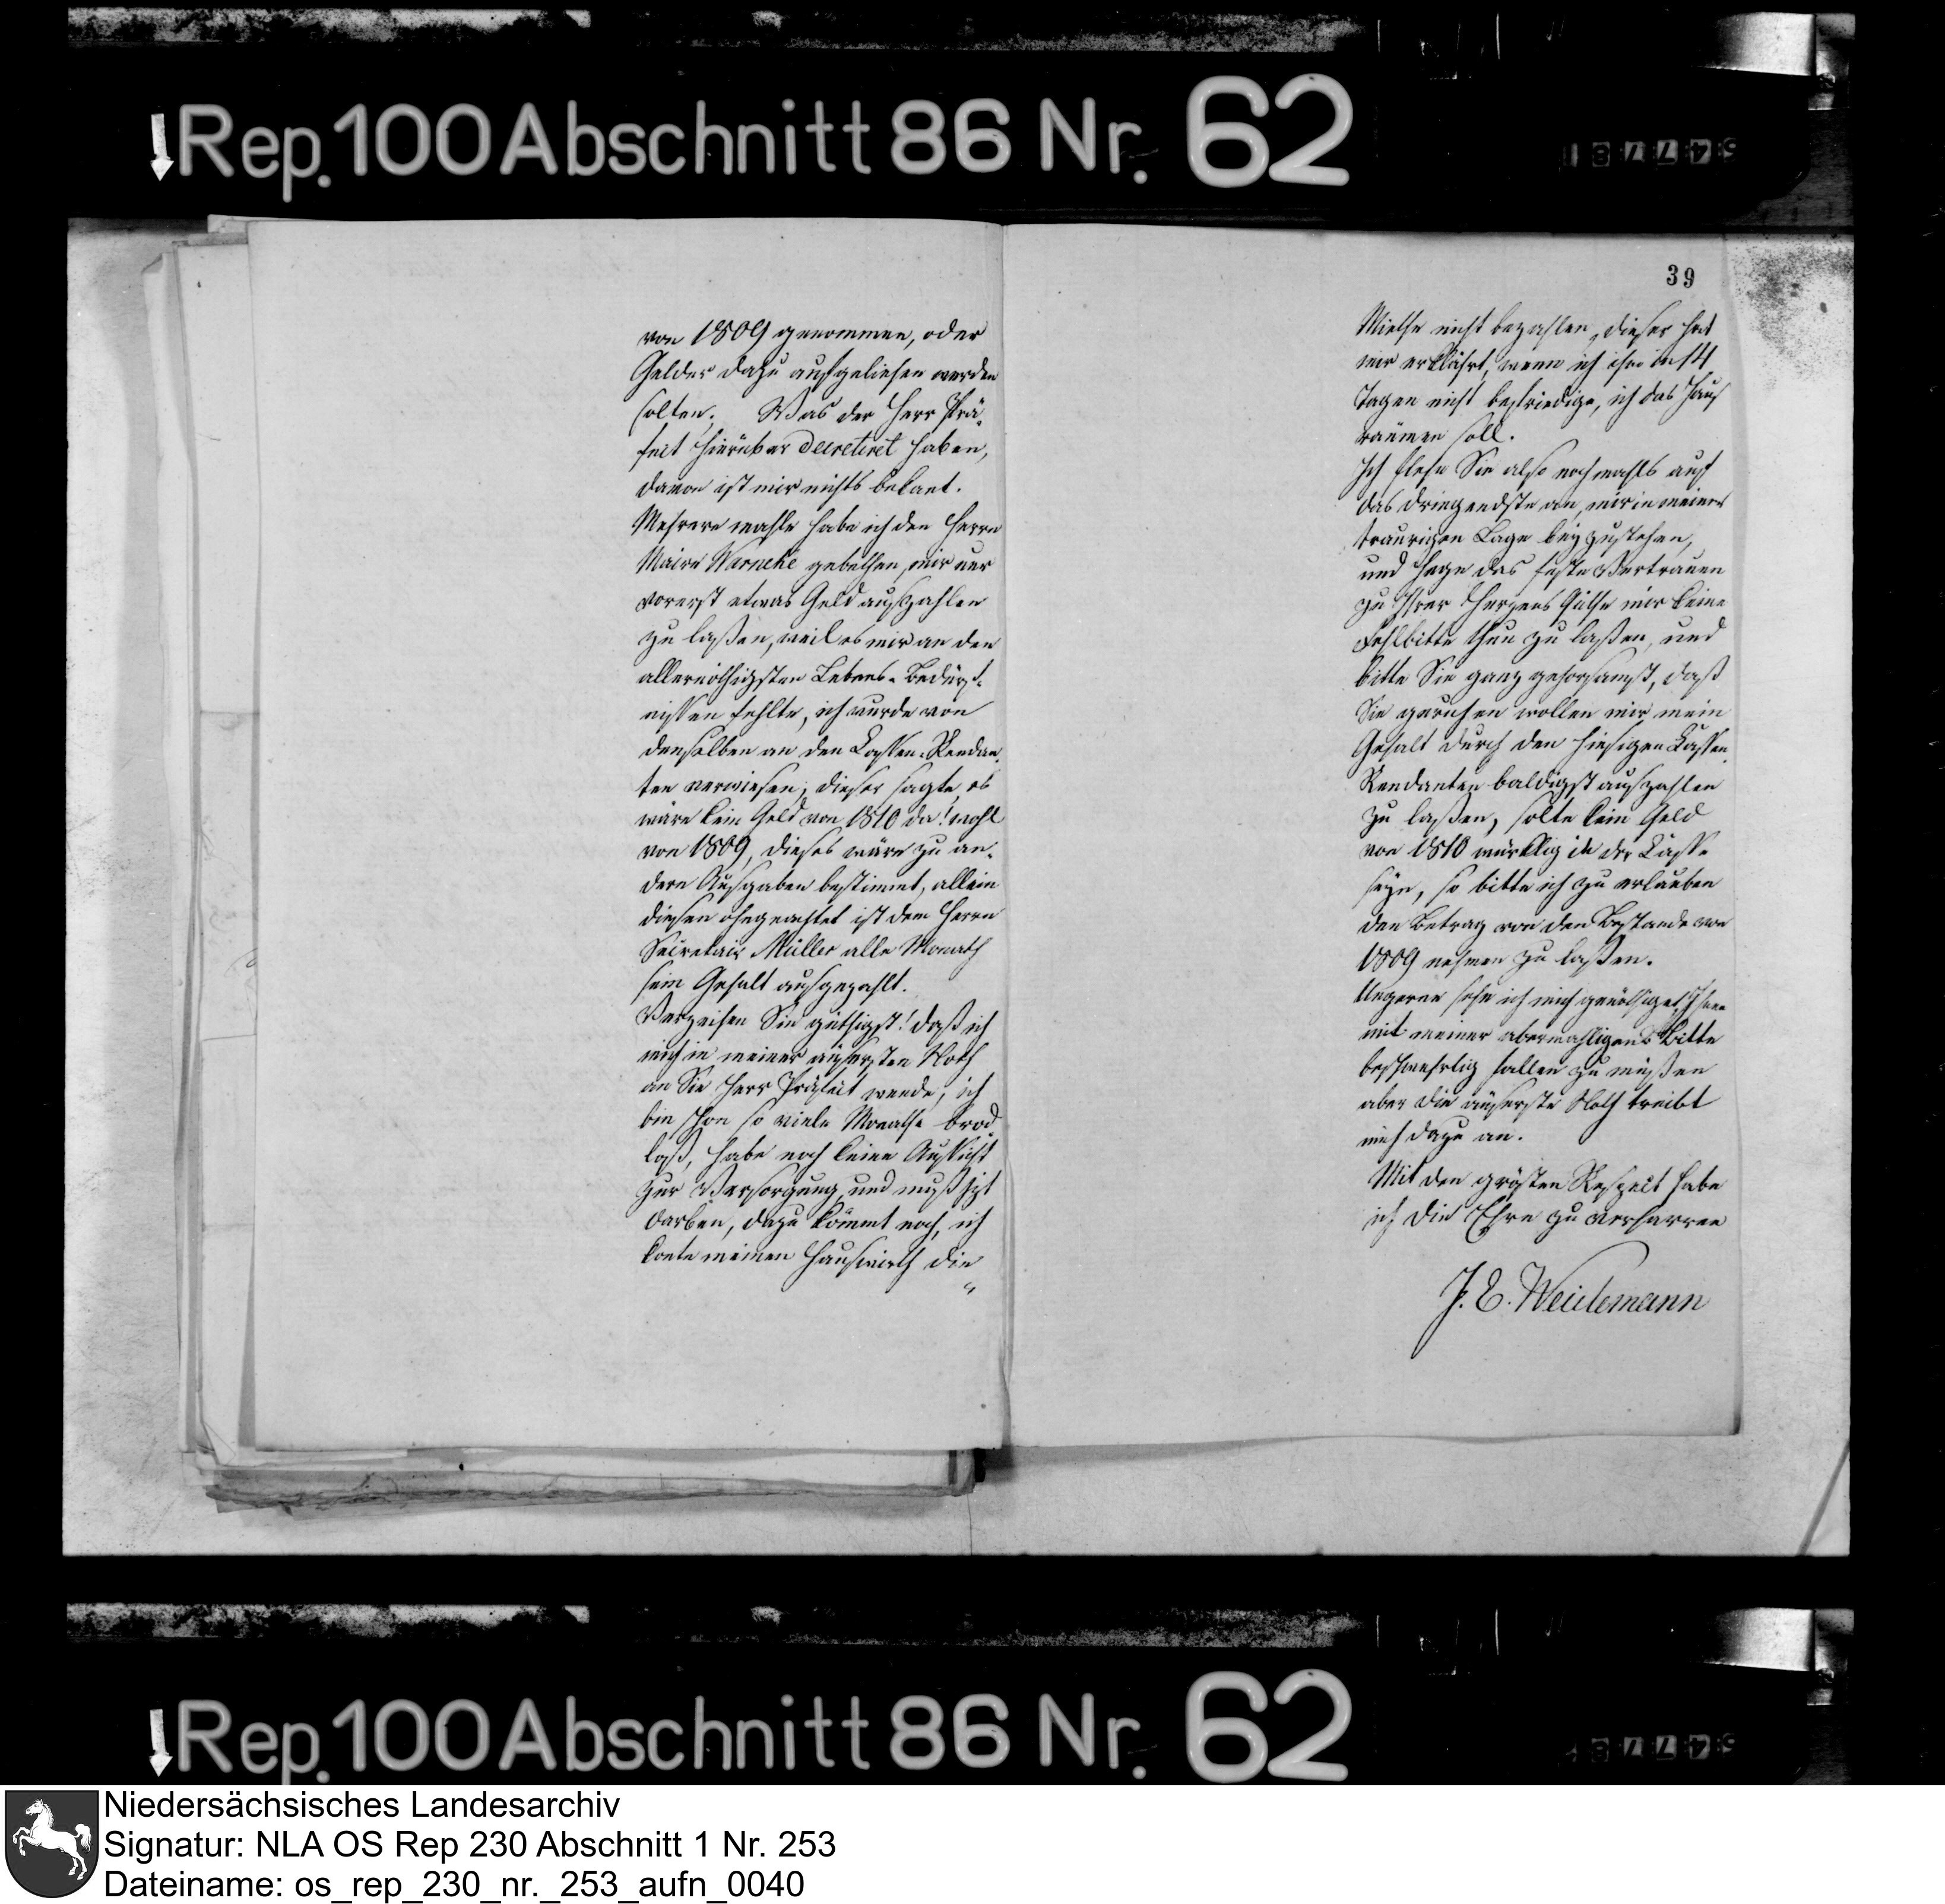 Rep. 100 Abschnitt 86 Nr. 62
von 1809 genommen, oder
Gelder dazu aufgeliehen werden
solten. Was der Herr Prä-
fect hierüber decretiret haben,
davon ist mir nichts bekant.
Mehrere mahle habe ich den Herrn
Maire Warneke gebethen, mir nur
vorerst etwas Geld auszahlen
zu laßen, weil es mir an den
allernöthigsten Lebens-Bedürf-
nissen fehlte, ich wurde von
denselben an den Cassen-Rendan-
ten verwiesen, dieser sagte, es
wäre kein Geld von 1810 da! wohl
von 1809, dieses wäre zu an-
dern Ausgaben bestimmt, allein
diesen ohngeachtet ist dem Herrn
Secretair Müller alle Monath
sein Gehalt ausgezahlt.
Verzeihen Sie gütigst! daß ich
mich in meiner äusersten Noth
an Sie Herr Präfect wende, ich
bin schon so viele Monathe brod
loß, habe noch keine Aussicht
zur Versorgung, und muß jzt
darben, dazu kömmt noch, ich
konte meinen Hauswirth die
39
Miethe nicht bezahlen, dieser hat
mir erklährt, wenn ich ihn in 14
Tagen nicht befriedige, ich das Haus
räumen soll.
Ich flehe Sie also nochmahls auf
das dringendste an, mir in meiner
traurigen Lage beyzustehen,
und hege das feste Vertrauen
zu Ihrer Herzens Güthe mir keine
Fehlbitte thun zu laßen, und
bitte Sie ganz gehorsamst, daß
Sie geruhen wollen mir mein
Gehalt durch den hiesigen Cassen
Rendanten baldigst auszahlen
zu laßen, solte kein Geld
von 1810 würklig in der Casse
seyn, so bitte ich zu erlauben
den Betrag von den Bestande von
1809 nehmen zu laßen.
Ungerne sehe ich mich genöthiget, Ihnen
mit meiner abermahligen Bitte
beschwehrlig fallen zu müßen
aber die äuserste Noth treibt
mich dazu an.
Mit den grösten Respect habe
ich die Ehre zu verharren
J. E. Weidemann
Rep. 100 Abschnitt 86 Nr. 62
Niedersächsisches Landesarchiv
Signatur: NLA OS Rep 230 Abschnitt 1 Nr. 253
Dateiname: os_rep_230_nr._253_aufn_0040